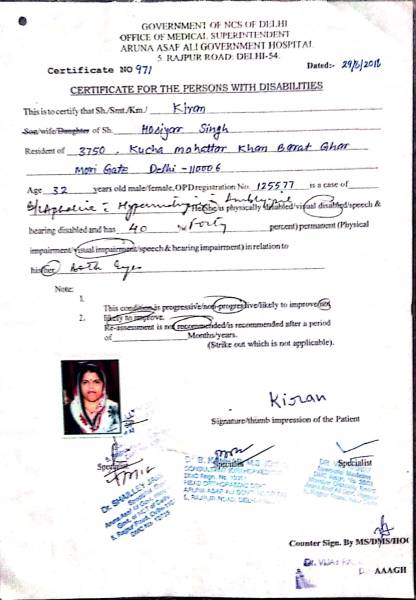 GOVERNMENT OF NCS OF DELHI
OFFICE OF MEDICAL SUPERINTENDENT
ARUNA ASAF ALI GOVERNMENT HOSPITAL
5. RAJPUR ROAD: DELHI-54.
Certificate NO 971 Dated:- 29/6/2016
CERTIFICATE FOR THE PERSONS WITH DISABILITIES
This is to certify that Sh./Smt./Km./ Kiran
Son/wife/Daughter of Sh. Hosiyar Singh
Resident of 3750, Kucha Mohattar Khan Barat Ghar
Mori Gate Delhi - 110006
Age 32 years old male/female, OPD registration No. 125577 is a case of
B/L Aphakia He/she is physically disabled/visual disabled/speech &
hearing disabled and has 40 Forty percent) permanent (Physical
impairment/visual impairment/speech & hearing impairment) in relation to
his/her Both Eyes
Note:
1. This condition is progressive/non-progressive/likely to improve/not
likely to improve.
2. Re-assessment is not recommended/is recommended after a period
of Months/years.
(Strike out which is not applicable).
Kiran
Signature/thumb impression of the Patient
Specialist Specialist Specialist
Counter Sign. By MS/DMS/HOO
AAAGH